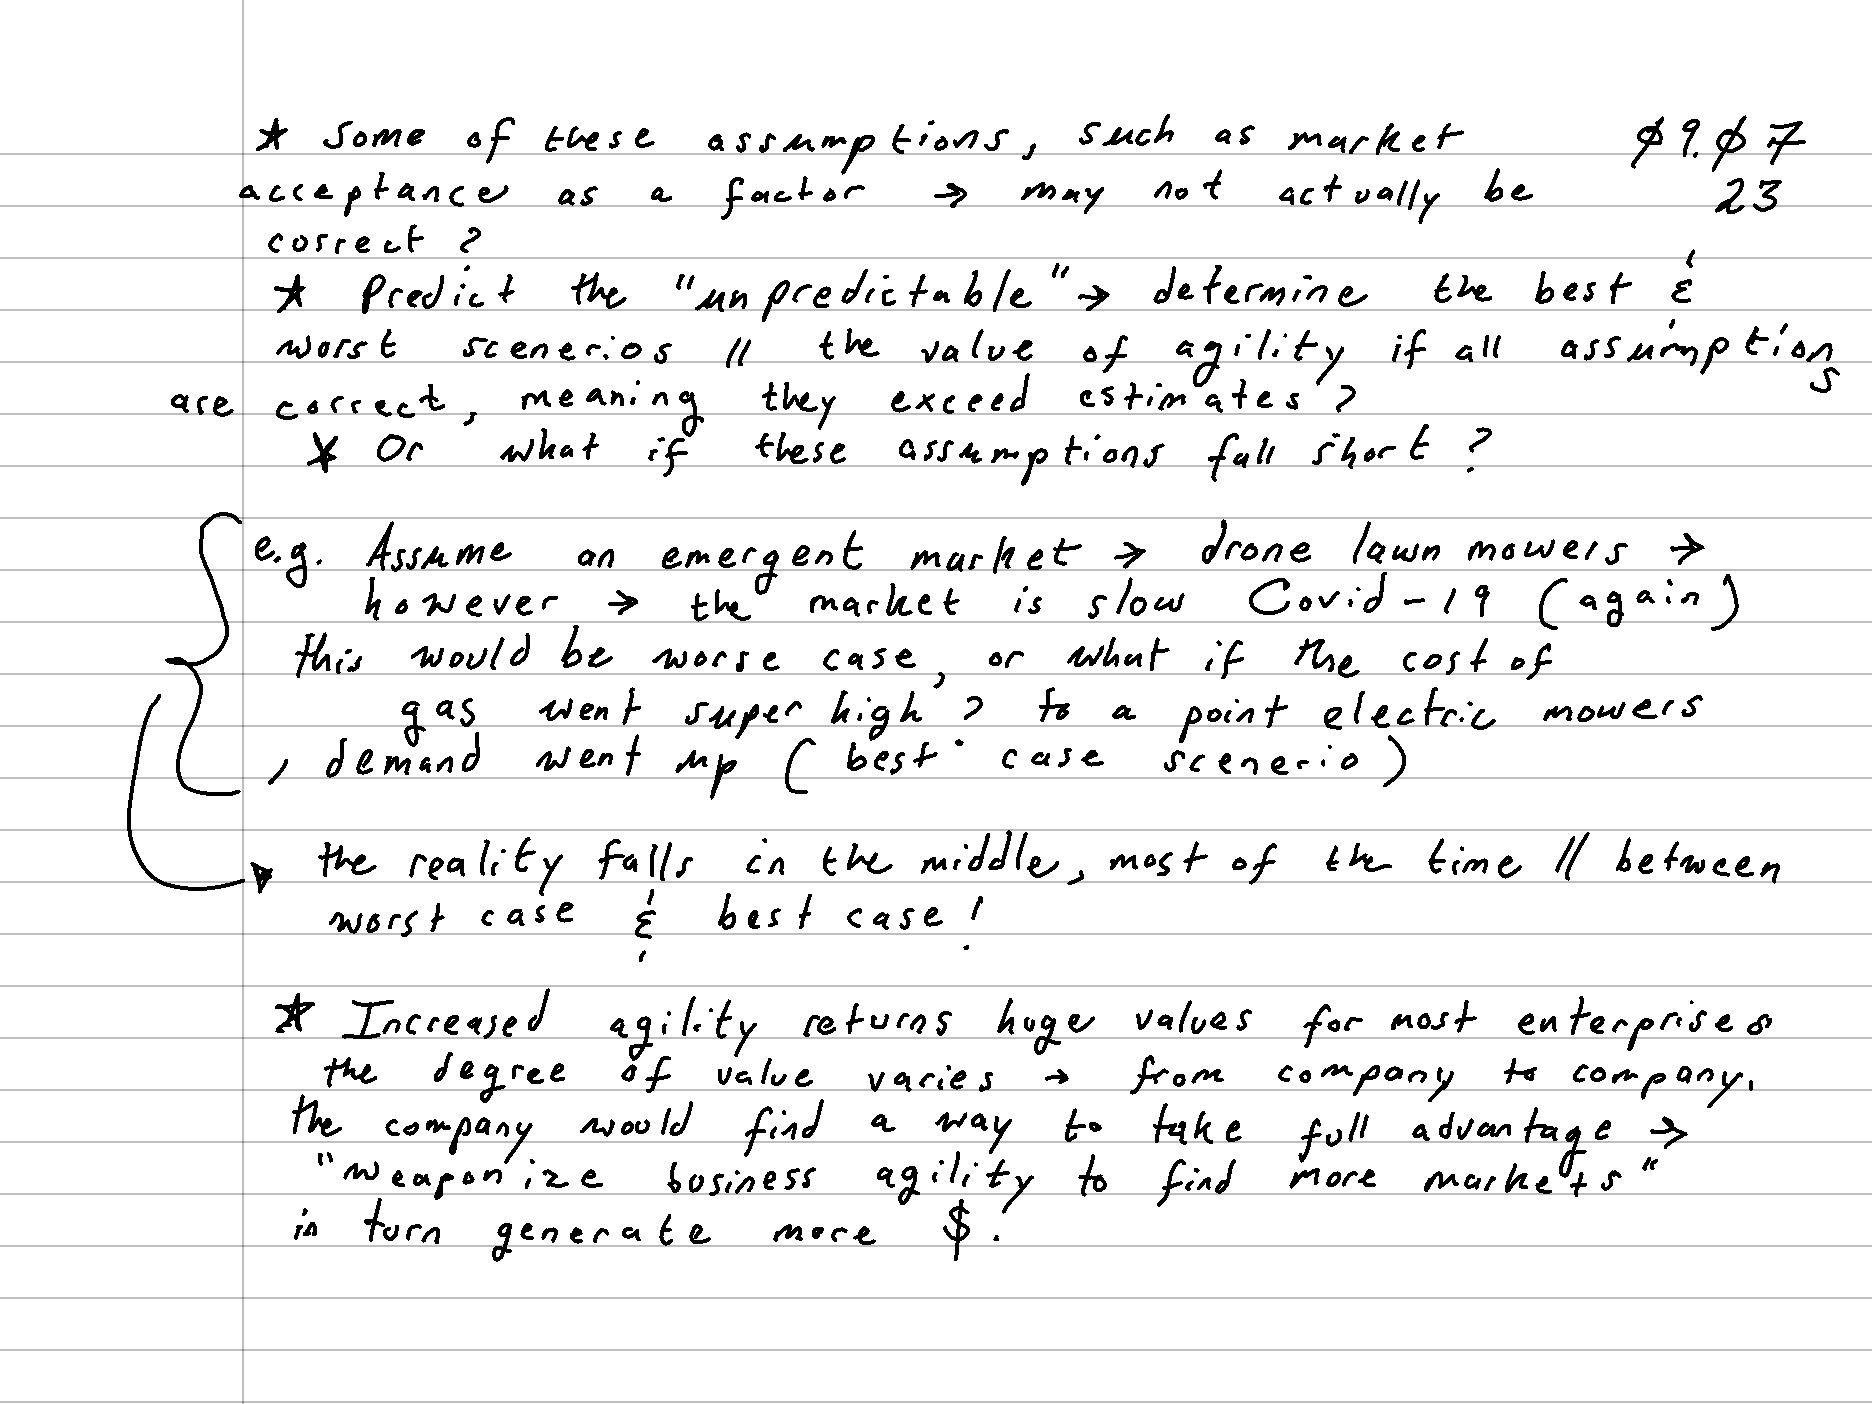 * Some of these assumptions, such as market
09.07
acceptance as a factor → may not actually be
23
correct?
* Predict the "unpredictable" → determine the best &
worst scenerios // the value of agility if all assumptions
are correct, meaning they exceed estimates?
* Or what if these assumptions fall short?
e.g. Assume an emergent market → drone lawn mowers →
however → the market is slow Covid-19 (again)
this would be worse case, or what if the cost of
gas went super high? to a point electric mowers
, demand went up (best case scenerio)
the reality falls in the middle, most of the time // between
worst case & best case!
* Increased agility returns huge values for most enterprises
the degree of value varies → from company to company.
the company would find a way to take full advantage →
"weaponize business agility to find more markets"
in turn generate more $.